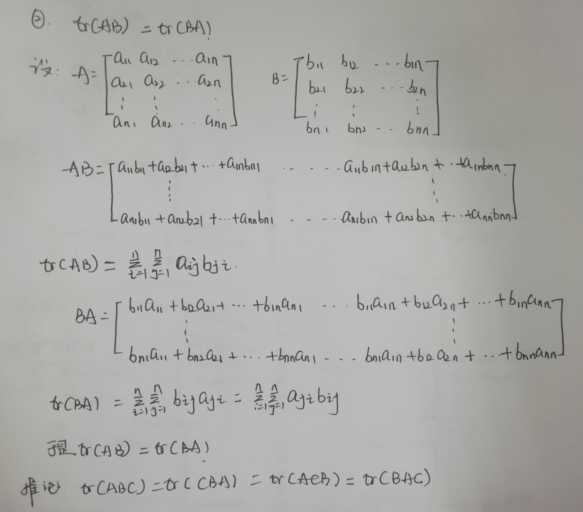 ②. tr(AB) = tr(BA)
设: A = [a₁₁ a₁₂ ⋯ a₁ₙ B = [b₁₁ b₁₂ ⋯ b₁ₙ
a₂₁ a₂₂ ⋯ a₂ₙ b₂₁ b₂₂ ⋯ b₂ₙ
⋮ ⋮ ⋮ ⋮ ⋮ ⋮
aₙ₁ aₙ₂ ⋯ aₙₙ] bₙ₁ bₙ₂ ⋯ bₙₙ]
AB = [a₁₁b₁₁ + a₁₂b₂₁ + ⋯ + a₁ₙbₙ₁ ⋯ a₁₁b₁ₙ + a₁₂b₂ₙ + ⋯ + a₁ₙbₙₙ
⋮ ⋮
aₙ₁b₁₁ + aₙ₂b₂₁ + ⋯ + aₙₙbₙ₁ ⋯ aₙ₁b₁ₙ + aₙ₂b₂ₙ + ⋯ + aₙₙbₙₙ]
tr(AB) = ∑ⁿᵢ₌₁ ∑ⁿⱼ₌₁ aᵢⱼbⱼᵢ.
BA = [b₁₁a₁₁ + b₁₂a₂₁ + ⋯ + b₁ₙaₙ₁ ⋯ b₁₁a₁ₙ + b₁₂a₂ₙ + ⋯ + b₁ₙaₙₙ
⋮ ⋮
bₙ₁a₁₁ + bₙ₂a₂₁ + ⋯ + bₙₙaₙ₁ ⋯ bₙ₁a₁ₙ + b₂a₂ₙ + ⋯ + bₙₙaₙₙ]
tr(BA) = ∑ⁿᵢ₌₁ ∑ⁿⱼ₌₁ bᵢⱼaⱼᵢ = ∑ⁿᵢ₌₁ ∑ⁿⱼ₌₁ aⱼᵢbᵢⱼ
tr(AB) = tr(BA)
推论 tr(ABC) = tr(CBA) = tr(ACB) = tr(BAC)